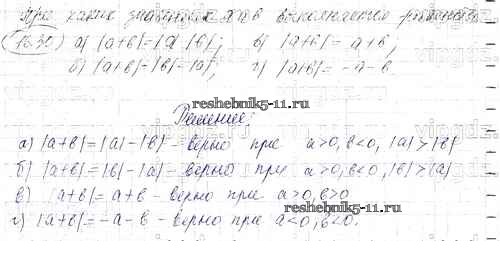 При каких значениях а и в выполняется равенство
1630) а) |а+в|=|а|-|в|; в) |а+в|=а+в,
б) |а+в|=|в|-|а|; г) |а+в|=-а-в.
reshebnik5-11.ru
Решение:
а) |а+в|=|а|-|в| - верно при а>0, в<0, |а|>|в|
б) |а+в|=|в|-|а| - верно при а>0, в<0, |в|>|а|
в) |а+в|=а+в - верно при а>0, в>0
г) |а+в|=-а-в - верно при а<0, в<0.
reshebnik5-11.ru